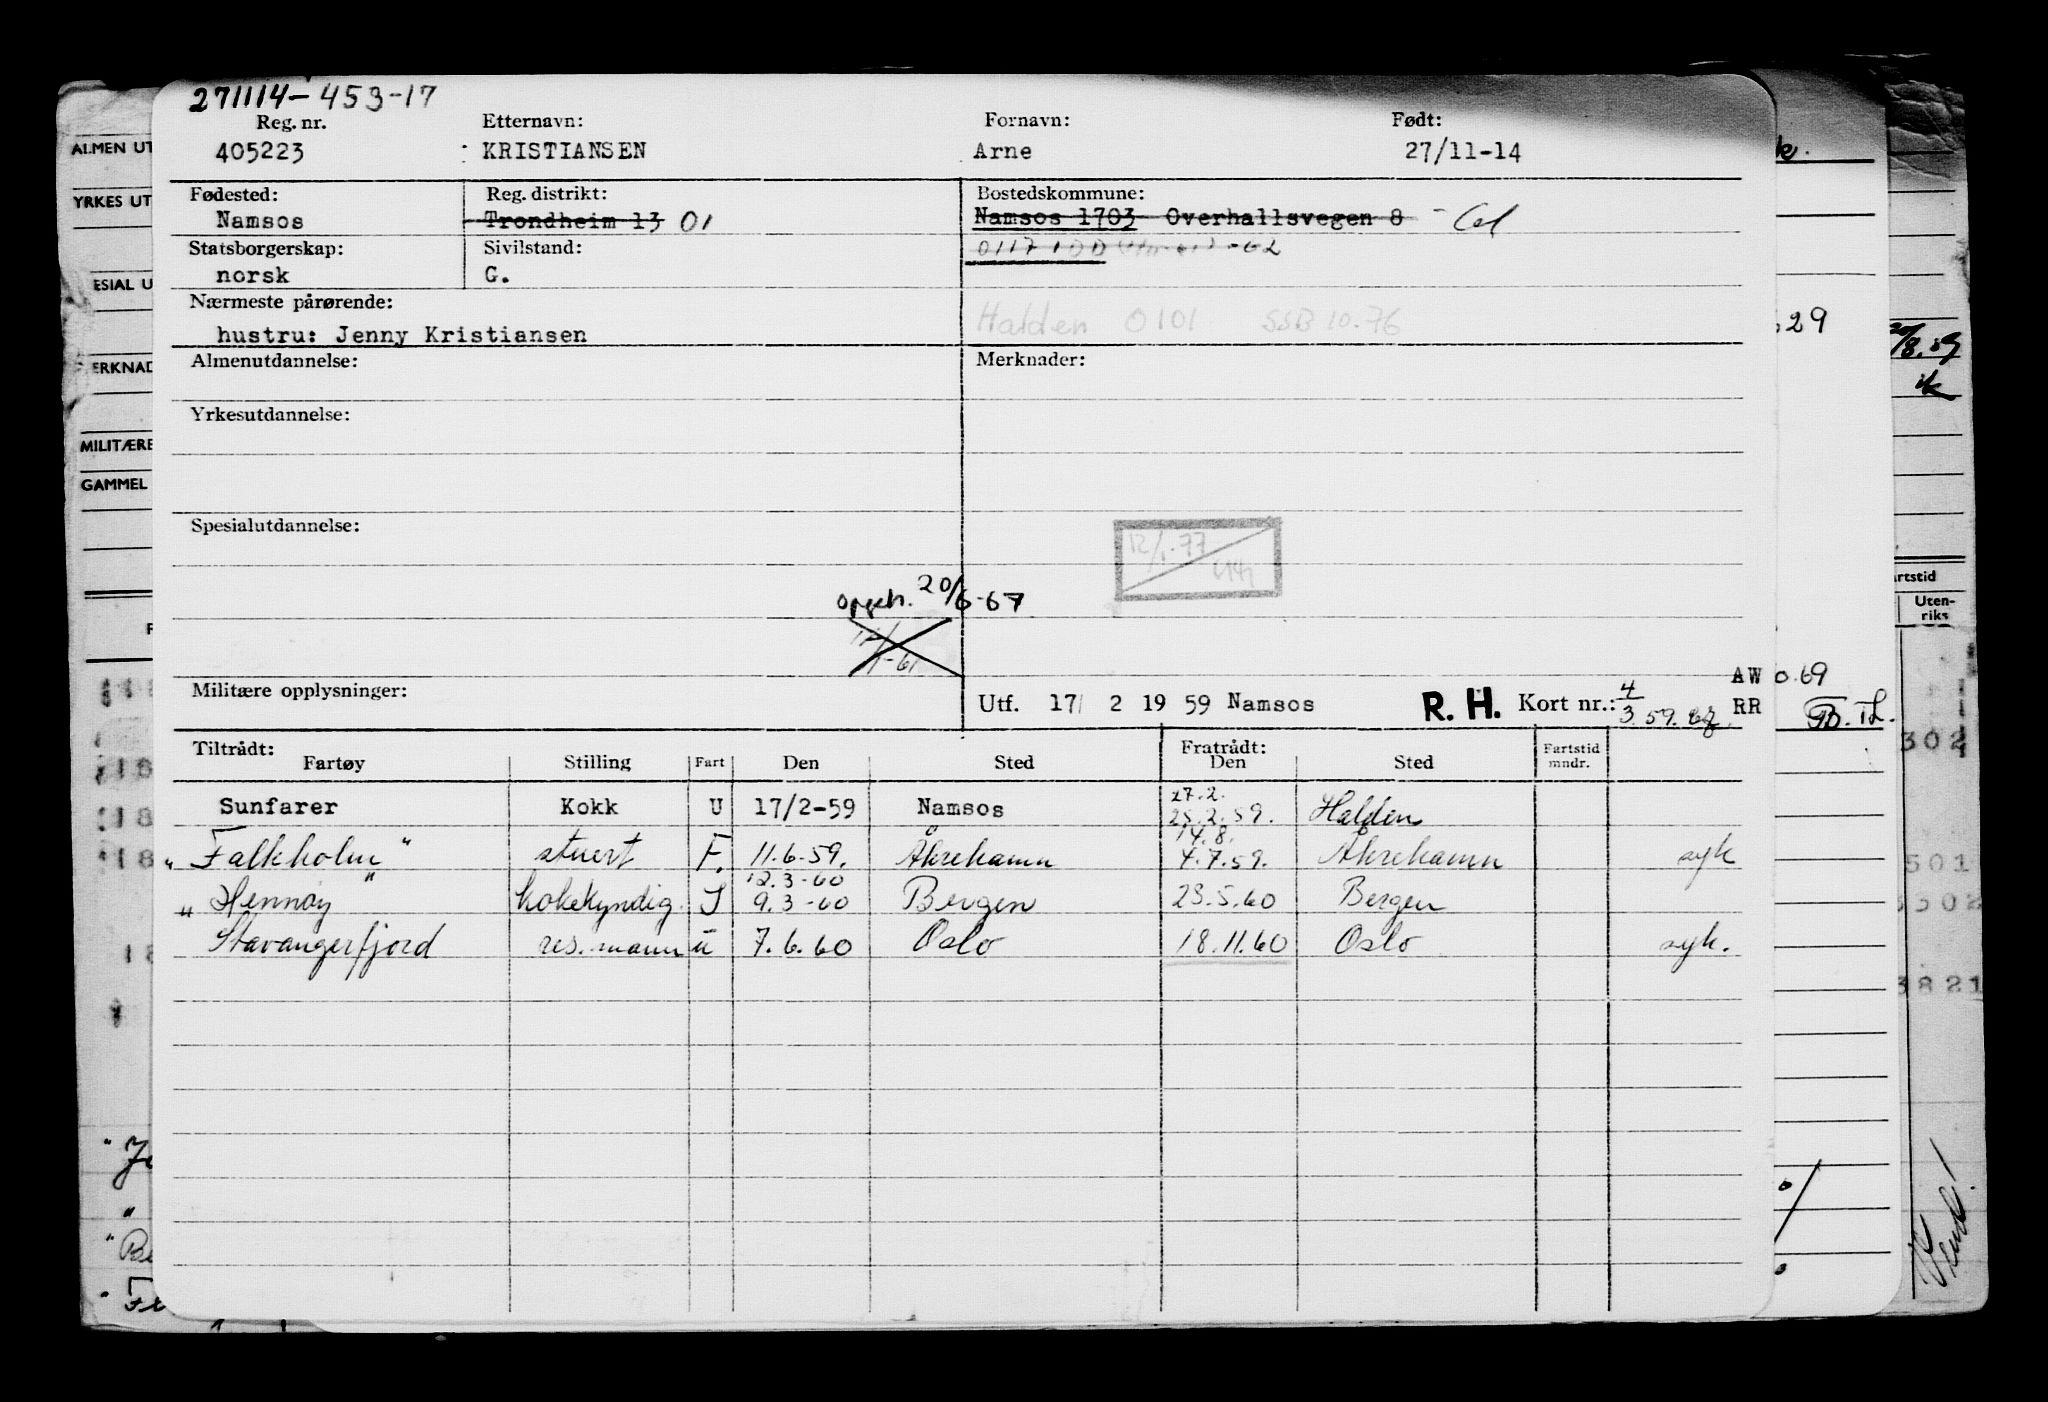 271114-453-17
Reg. nr. Etternavn: Fornavn: Født:
405223 KRISTIANSEN Arne 27/11-14
Fødested: Reg. distrikt: Bostedskommune:
Namsos Trondheim 13 01 Namsos 1703 Overhallsvegen 8 -
Statsborgerskap: Sivilstand: 0117
norsk G.
Nærmeste pårørende: Halden 0101 SSB 10.76
hustru: Jenny Kristiansen
Almenutdannelse: Merknader:
Yrkesutdannelse:
Spesialutdannelse:
12/1-77
20/6-67
Militære opplysninger: Utf. 17/ 2 19 59 Namsos R. H. Kort nr.: 4/3 59. AW RR
Tiltrådt: Fratrådt:
Fartøy Stilling Fart Den Sted Den Sted Fartstid mndr.
Sunfarer Kokk U 17/2-59 Namsos 27.2. 25.2.59. Halden
"Falkholm" stuert F. 11.6-59. Åkrehamn 14.8. 4.7.59. Åkrehamn syk
"Hennøy" kokekyndig J 12.3-60 9.3-60 Bergen 23.5.60 Bergen
Stavangerfjord res. mann u 7.6.60 Oslo 18.11.60 Oslo syk.
ALMEN UT
YRKES UT
ESIAL U
ERKNAD
MILITÆRE
GAMMEL
29
0.69
artstid
Uten-
riks
302
501
3502
3821